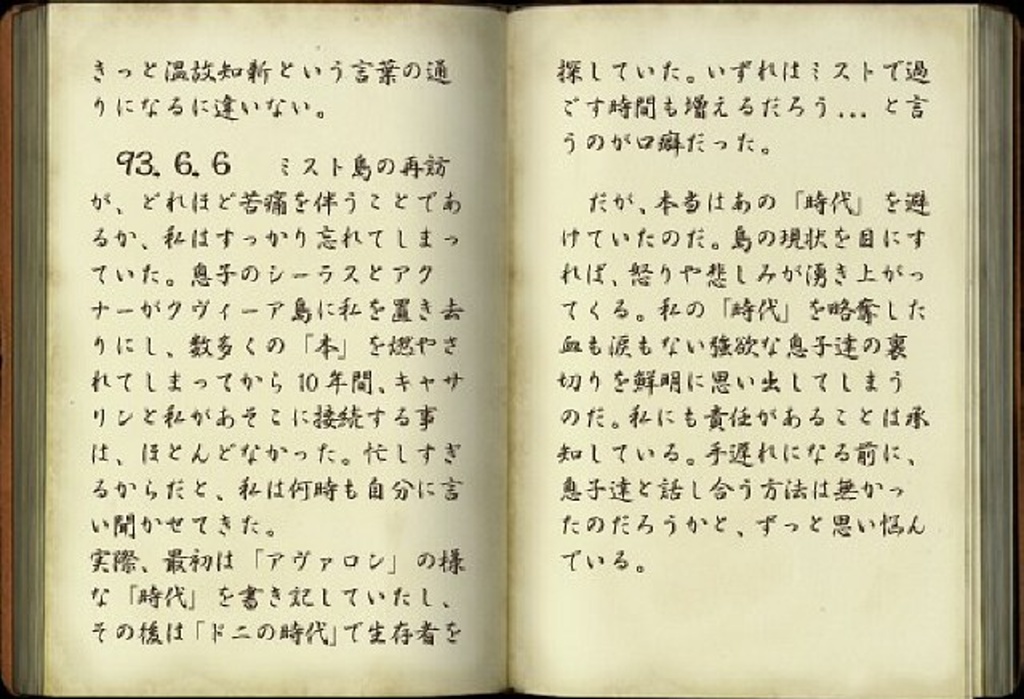 きっと温故知新という言葉の通
りになるに違いない。
93.6.6 ミスト島の再訪
が、どれほど苦痛を伴うことであ
るか、私はすっかり忘れてしまっ
ていた。息子のシーラスとアク
ナーがクヴィーア島に私を置き去
りにし、数多くの「本」を燃やさ
れてしまってから10年間、キャサ
リンと私があそこに接続する事
は、ほとんどなかった。忙しすぎ
るからだと、私は何時も自分に言
い聞かせてきた。
実際、最初は「アヴァロン」の様
な「時代」を書き記していたし、
その後は「ドニの時代」で生存者を
探していた。いずれはミストで過
ごす時間も増えるだろう...と言
うのが口癖だった。
だが、本当はあの「時代」を避
けていたのだ。島の現状を目にす
れば、怒りや悲しみが湧き上がっ
てくる。私の「時代」を略奪した
血も涙もない強欲な息子達の裏
切りを鮮明に思い出してしまう
のだ。私にも責任があることは承
知している。手遅れになる前に、
息子達と話し合う方法は無かっ
たのだろうかと、ずっと思い悩ん
でいる。